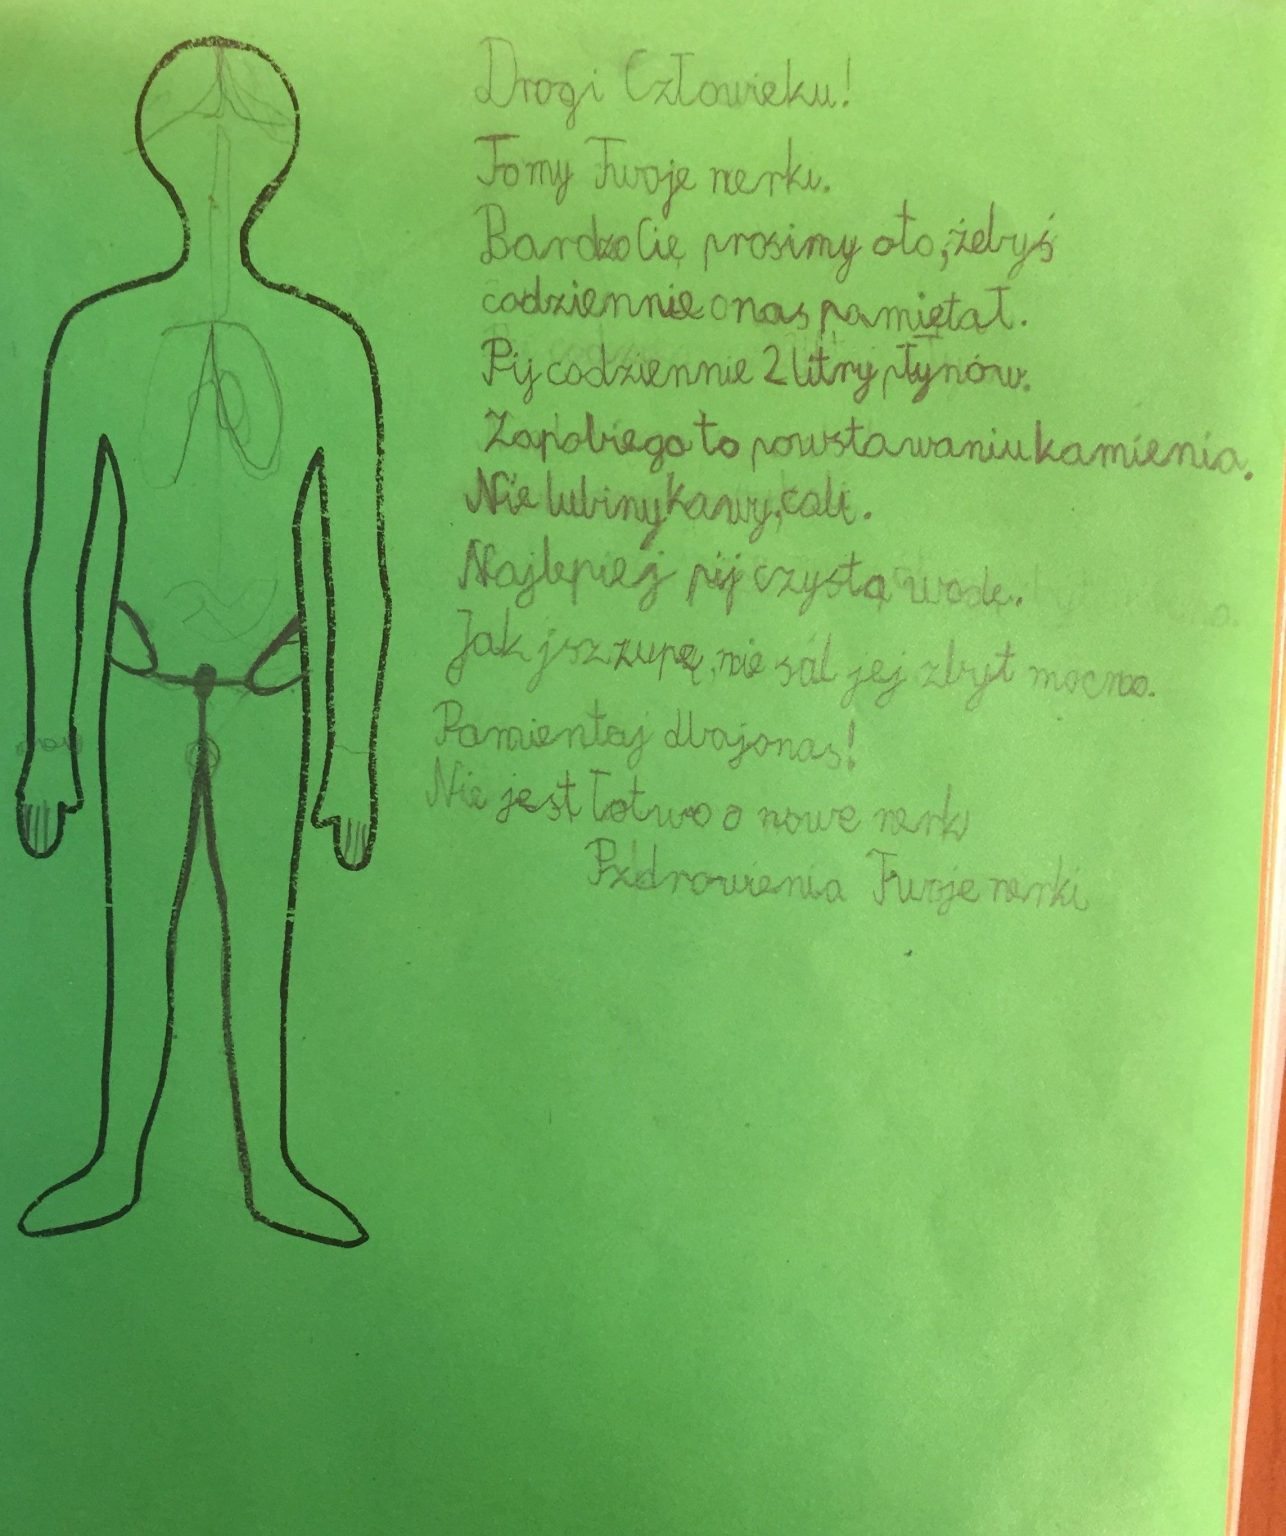 Drogi Człowieku!
Tomy Twoje nerki.
Bardzo Cię prosimy oto, żebyś
codziennie o nas pamiętał.
Pij codziennie 2 litry płynów.
Zapobiega to powstawaniu kamienia.
Nie lubimy kawy, coli.
Najlepiej pij czystą wodę.
Jak jsz zupę, nie sól jej zbyt mocno.
Pamientaj dbajonas!
Nie jest łatwo o nowe nerk
Pzdrowienia Twoje nerki